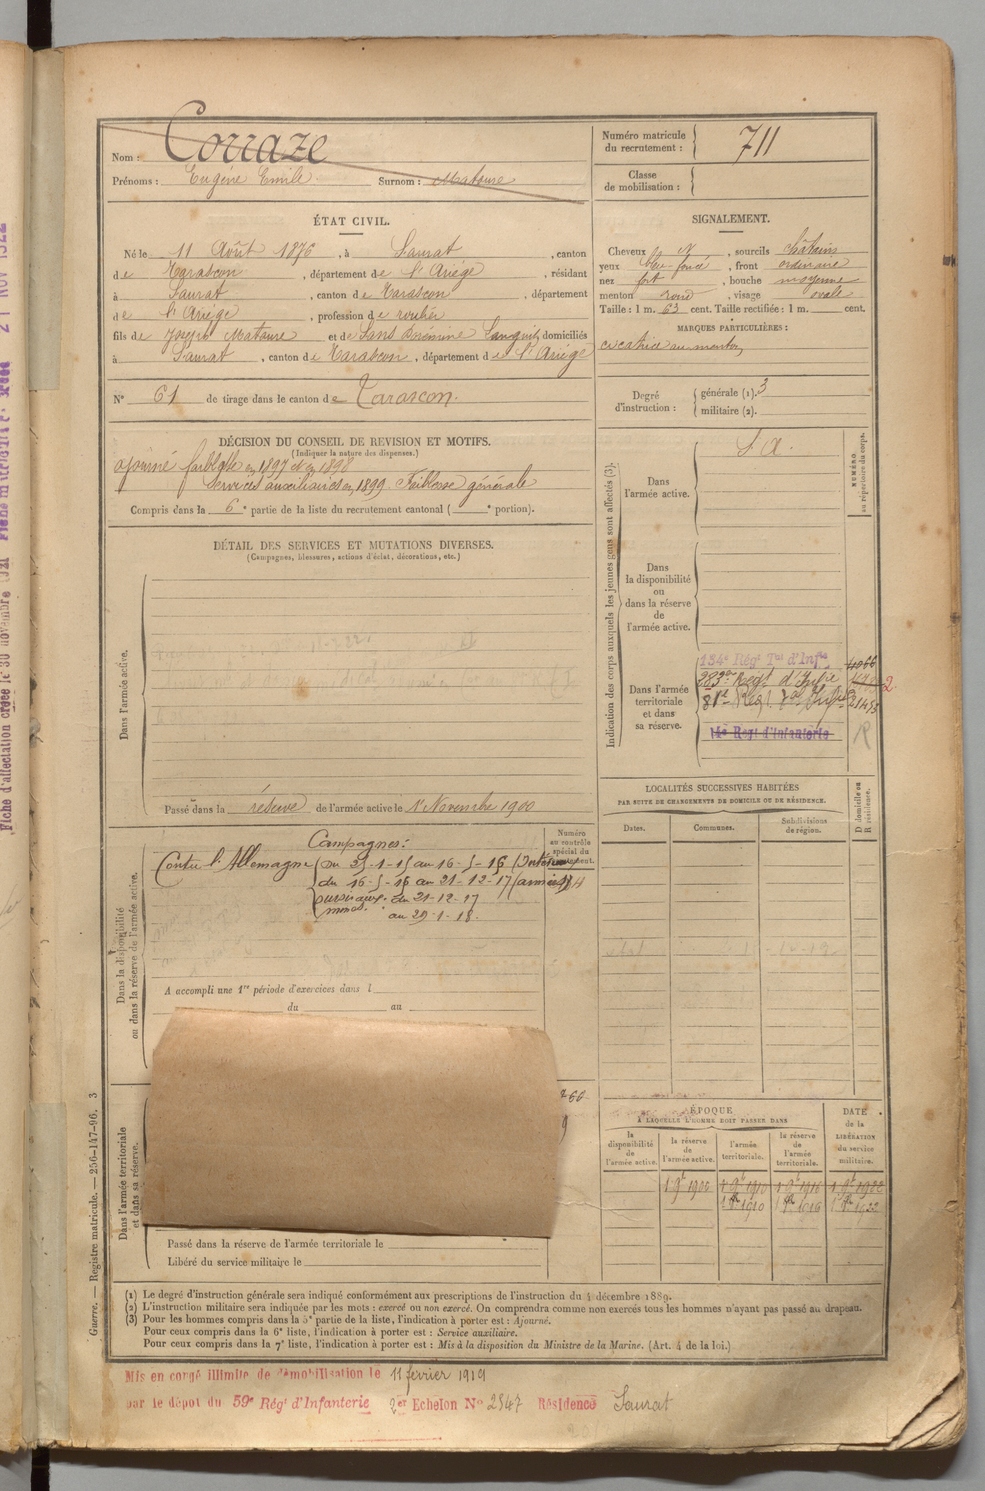 Nom : Corraze
Prénoms : Eugène Emile Surnom : Matoure
Numéro matricule du recrutement : 711
Classe de mobilisation :
ÉTAT CIVIL.
Né le 11 Août 1876, à Saurat, canton
de Tarascon, département de l'Ariège, résidant
à Saurat, canton de Tarascon, département
de l'Ariège, profession de
fils de Joseph Matoure et de domiciliés
à Saurat, canton de Tarascon, département de l'Ariège
N° 61 de tirage dans le canton de Tarascon.
SIGNALEMENT.
Cheveux N, sourcils châtains
yeux bleu foncé, front ordinaire
nez fort, bouche moyenne
menton rond, visage ovale
Taille : 1 m. 63 cent. Taille rectifiée : 1 m. cent.
MARQUES PARTICULIÈRES :
cicatrice au menton
Degré d'instruction : générale (1). 3
militaire (2).
DÉCISION DU CONSEIL DE REVISION ET MOTIFS.
(Indiquer la nature des dispenses.)
ajourné faiblesse en 1897 et en 1898
services auxiliaires en 1899. Faiblesse générale
Compris dans la 6e partie de la liste du recrutement cantonal ( e portion).
DÉTAIL DES SERVICES ET MUTATIONS DIVERSES.
(Campagnes, blessures, actions d'éclat, décorations, etc.)
Dans l'armée active.
Passé dans la réserve de l'armée active le 1er Novembre 1900
Indication des corps auxquels les jeunes gens sont affectés (3).
NUMÉRO au répertoire du corps.
Dans l'armée active.
S. A.
Dans la disponibilité ou dans la réserve de l'armée active.
Dans l'armée territoriale et dans sa réserve.
134e Régt Tal d'Infie
283e Régt d'Infie
81e Régt Tal Infie
14e Regt d'Infanterie
LOCALITÉS SUCCESSIVES HABITÉES
PAR SUITE DE CHANGEMENTS DE DOMICILE OU DE RÉSIDENCE.
D domicile ou R résidence.
Dates. Communes. Subdivisions de région.
Dans la disponibilité ou dans la réserve de l'armée active.
Numéro au contrôle spécial du
Campagnes :
Contre l'Allemagne du 25-1-15 au 16-5-16 (Intérieur)
du 16-5-16 au 21-12-17 (armées)
du 21-12-17
au 29-1-18.
A accompli une 1re période d'exercices dans l
du au
Dans l'armée territoriale et dans sa réserve.
Passé dans la réserve de l'armée territoriale le
Libéré du service militaire le
ÉPOQUE
À LAQUELLE L'HOMME DOIT PASSER DANS
DATE de la LIBÉRATION du service militaire.
la disponibilité de l'armée active. la réserve de l'armée active. l'armée territoriale. la réserve de l'armée territoriale.
1 9e 1900 1 9e 1910 1 9e 1916 1 9e 1922
(1) Le degré d'instruction générale sera indiqué conformément aux prescriptions de l'instruction du 4 décembre 1889.
(2) L'instruction militaire sera indiquée par les mots : exercé ou non exercé. On comprendra comme non exercés tous les hommes n'ayant pas passé au drapeau.
(3) Pour les hommes compris dans la 5e partie de la liste, l'indication à porter est : Ajourné.
Pour ceux compris dans la 6e liste, l'indication à porter est : Service auxiliaire.
Pour ceux compris dans la 7e liste, l'indication à porter est : Mis à la disposition du Ministre de la Marine. (Art. 4 de la loi.)
Guerre. — Registre matricule. — 256-147-96. 3
Mis en congé illimité de démobilisation le 11 février 1919
par le dépôt du 59e Régt d'Infanterie 2er Echelon No 2547 Résidence Saurat